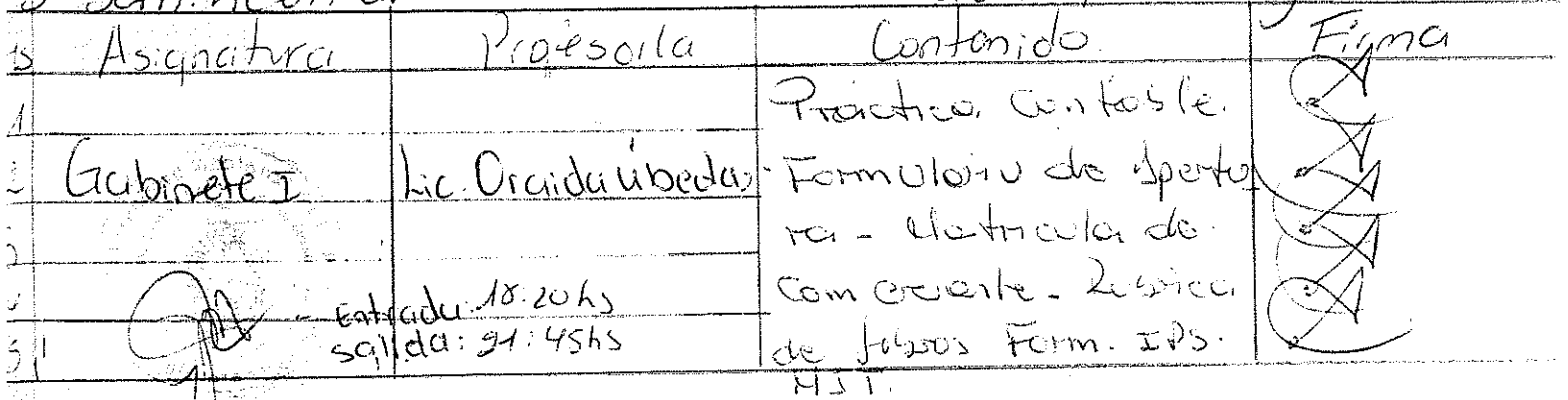 Asignatura Profesor/a Contenido. Firma
Práctica Contable.
Gabinete I Lic. Oraida Úbeda - Formulario de Apertu
ra - Matricula de
Comerciante - Rubrica
Entrada: 18:20hs
salida: 21:45hs
de libros Form. IPS.
MJT.